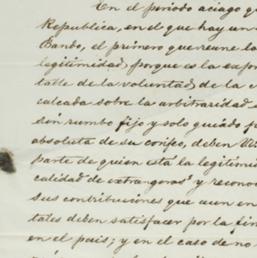 En el periodo aciago q
Republica, en el que hay un
Bando, el primero que reune la
legitimidad porque es la expre
table de la voluntad de la
calcada sobre la arbitrariedad
sin rumbo fijo y solo guiado p
absoluta de su deben
parte de quien está la legitimi
calidad de extrangeros y recono
sus contribuciones que aun en
tales deben satisfacer por la fin
en el pais; y en el caso de no